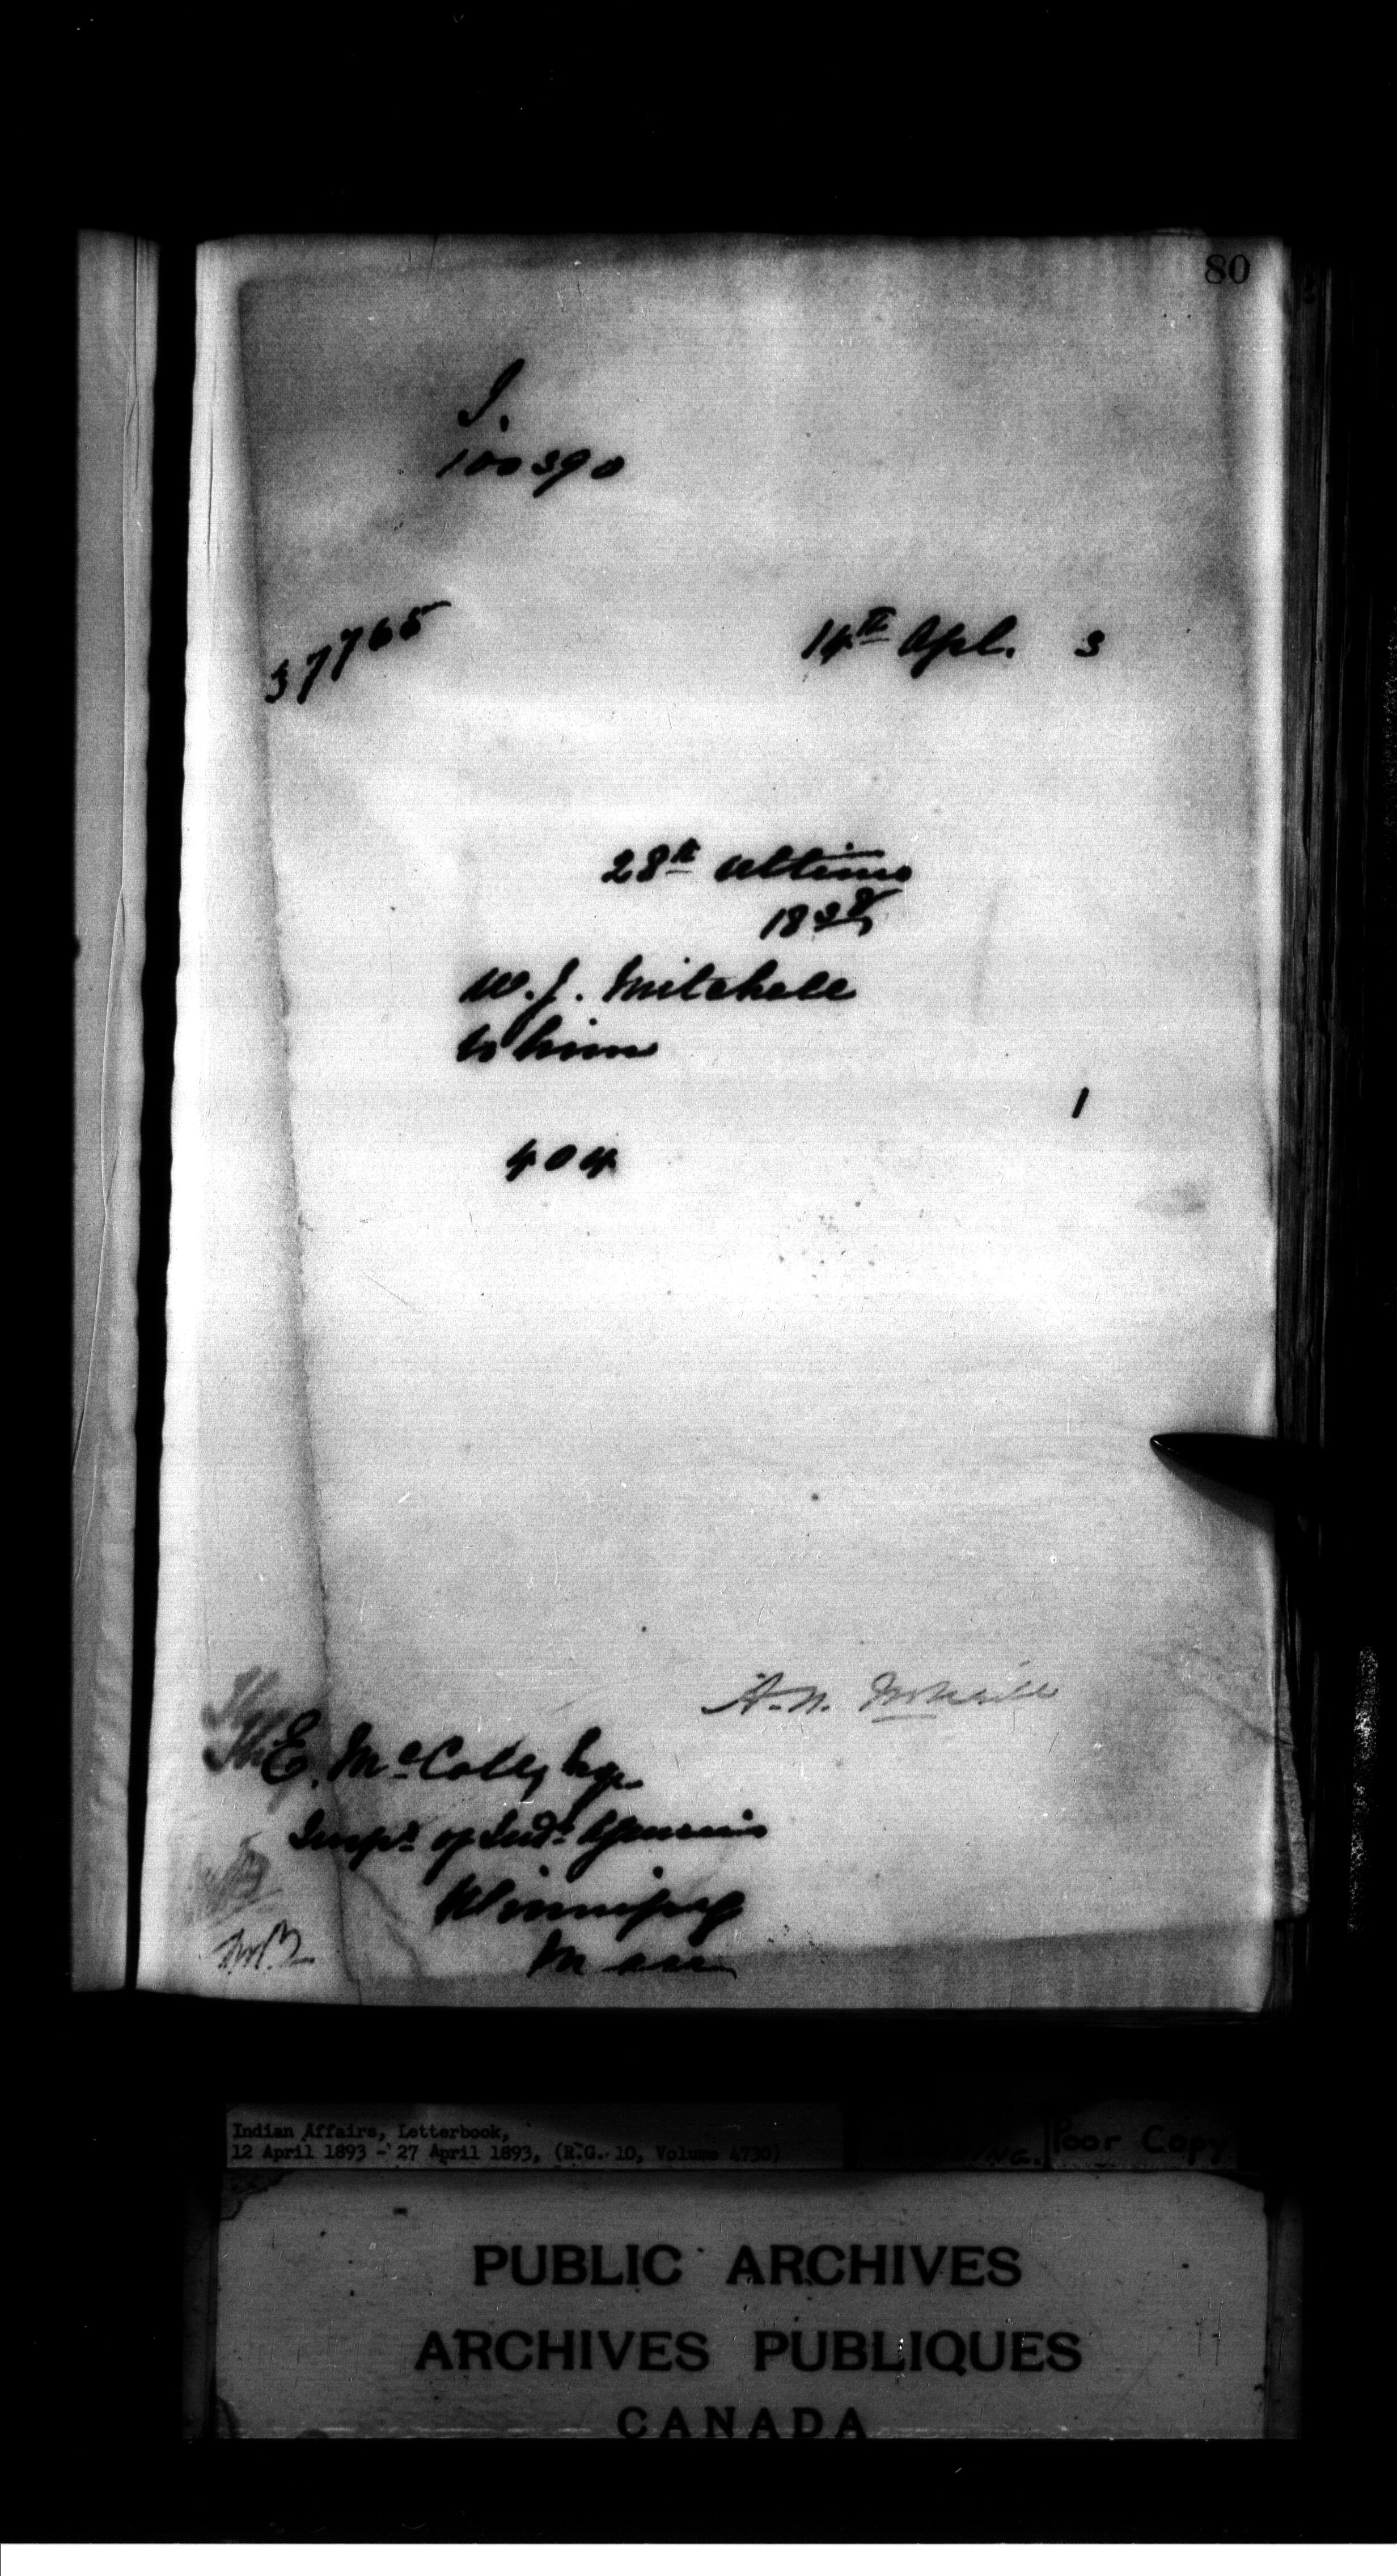 80
J.
100390
37765
14th Apl. 3
28th ultimo
W. J. Mitchell
to him
1
404
A. N. McNeill
E. McColl, Esq.
Inspr. of Indn. Agencies
Winnipeg
Man
Indian Affairs, Letterbook,
12 April 1893 - 27 April 1893, (R.G. 10, Volume 4730)
Poor Copy
PUBLIC ARCHIVES
ARCHIVES PUBLIQUES
CANADA